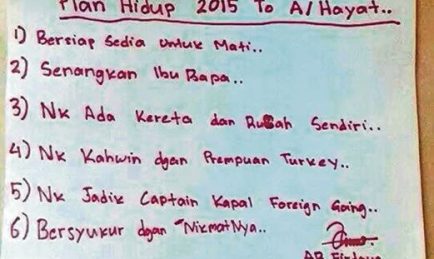 Plan Hidup 2015 To A/Hayat..
1) Bersiap Sedia untuk Mati..
2) Senangkan Ibu Bapa..
3) Nk Ada Kereta dan Rumah Sendiri..
4) Nk Kahwin dgan Prempuan Turkey..
5) Nk Jadik Captain Kapal Foreign Going..
6) Bersyukur dgan NikmatNya..
AB Firdaus